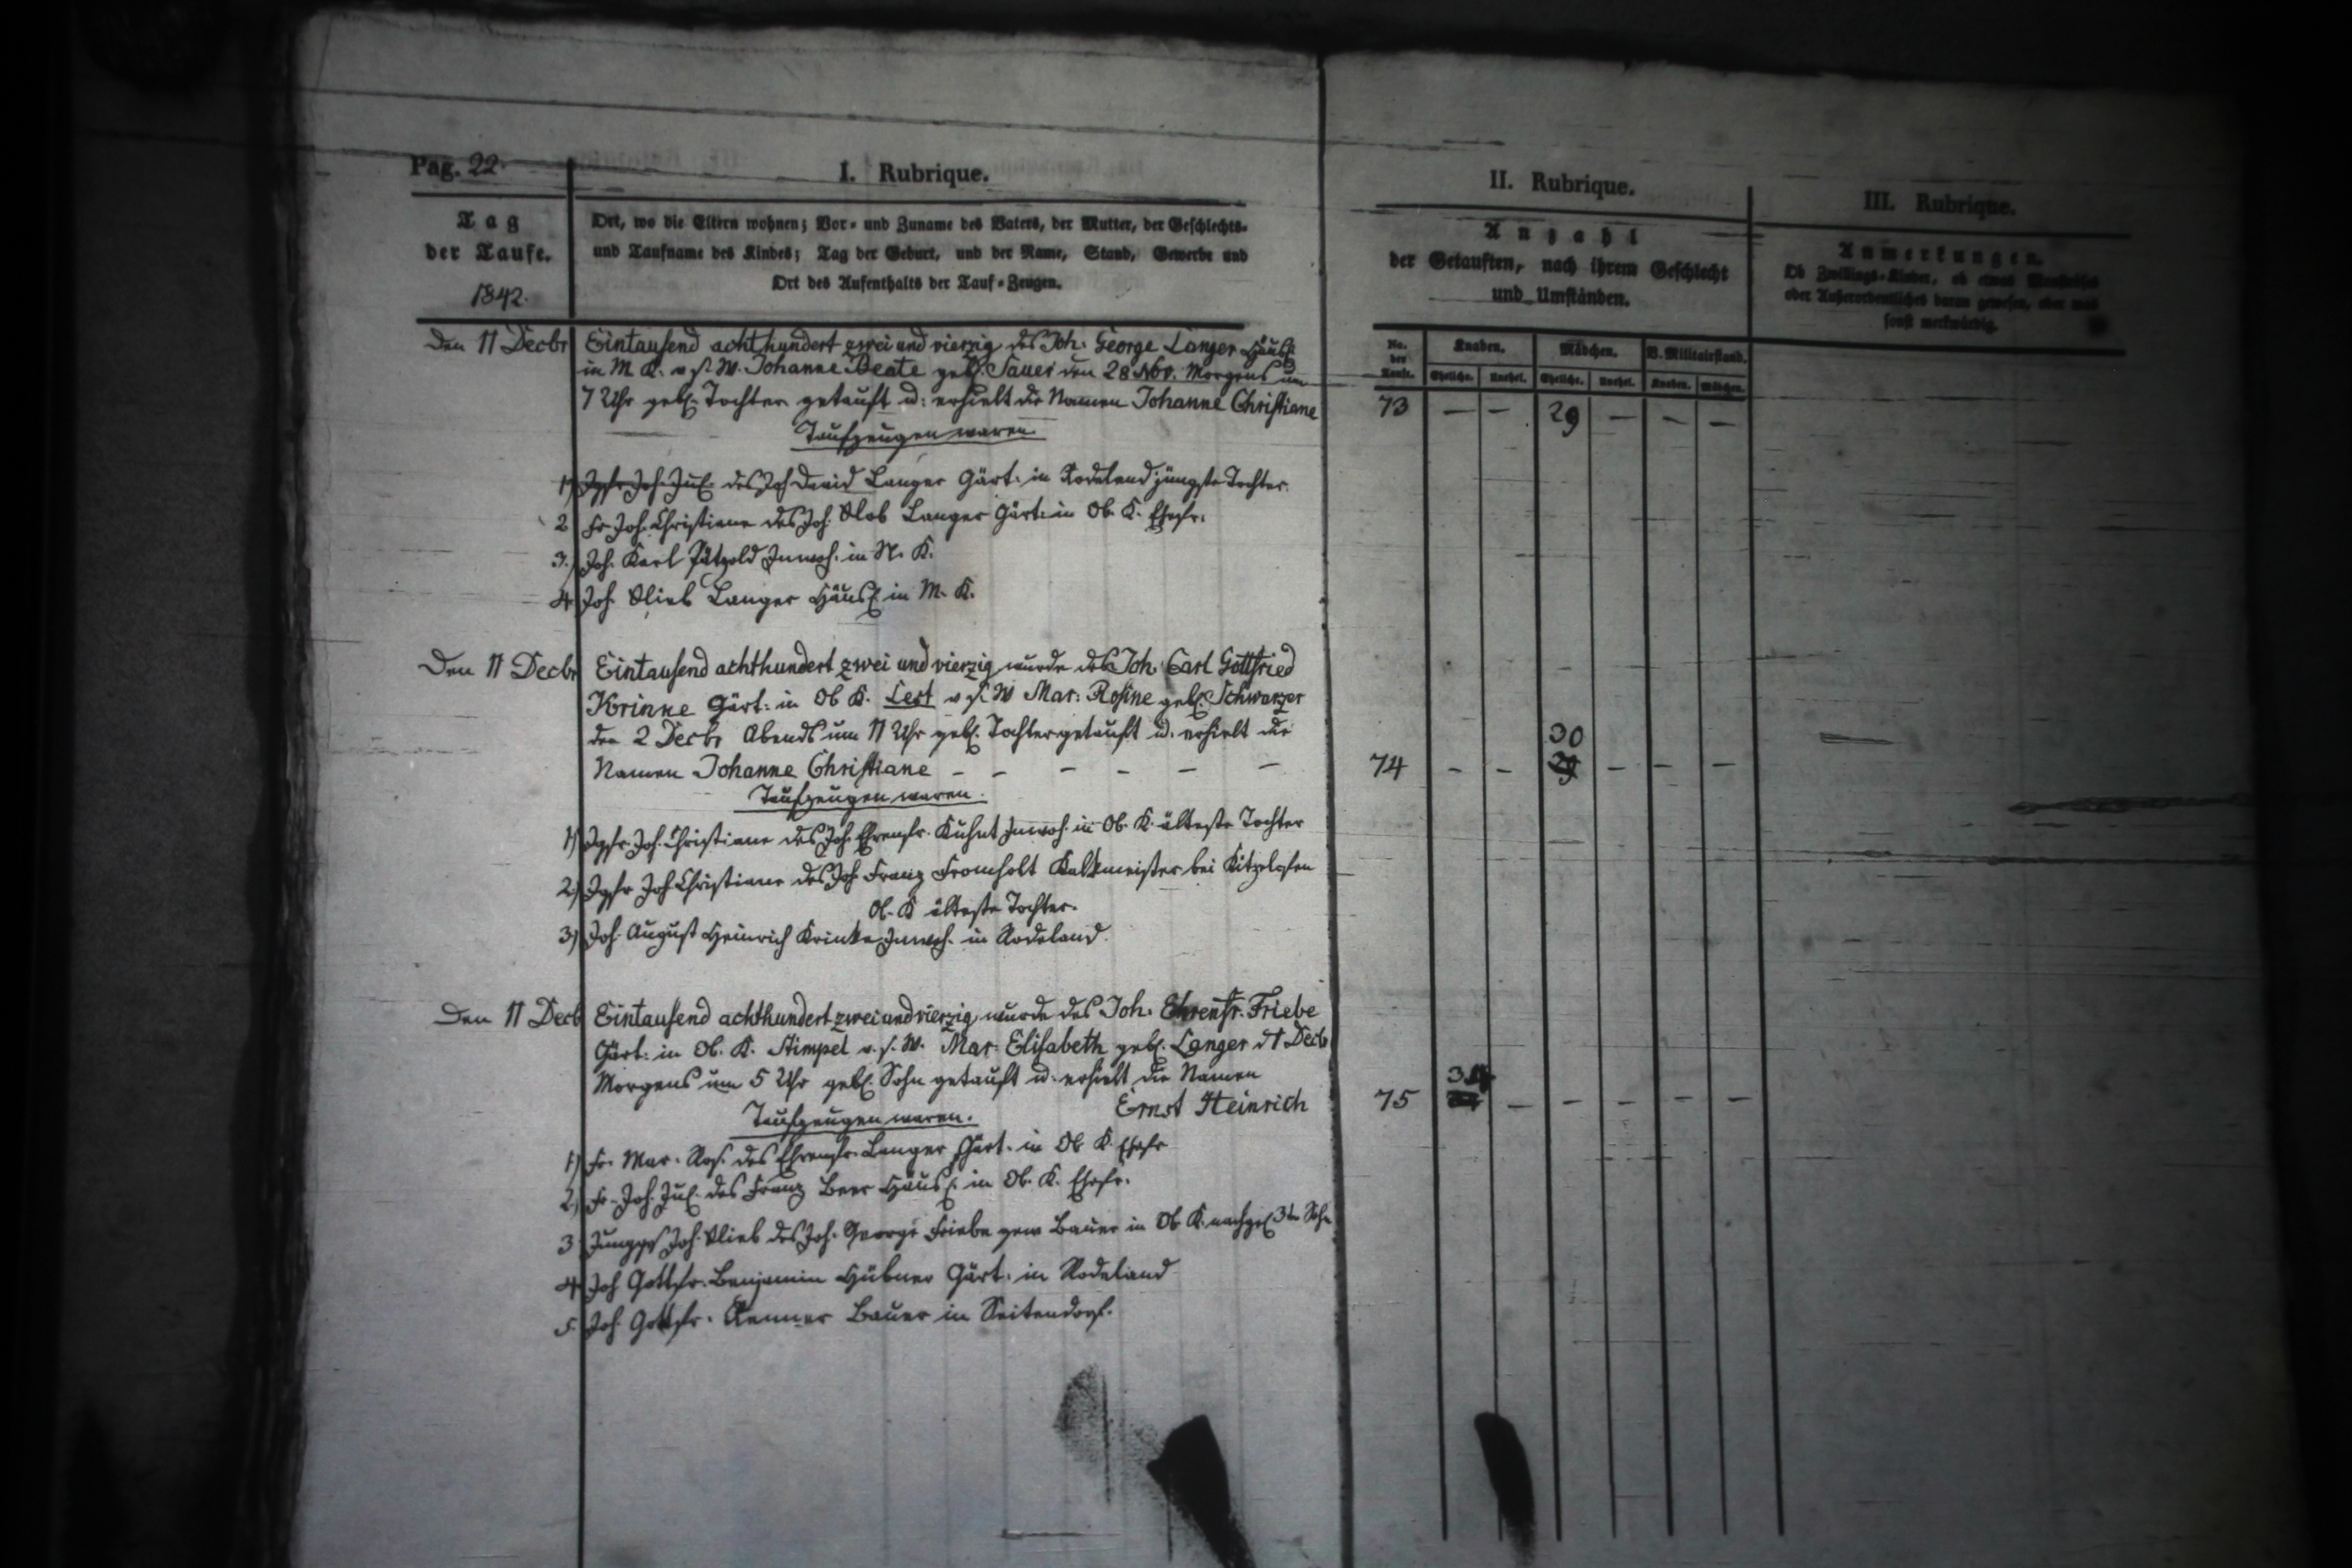 Pag. 22.
I. Rubrique.
II. Rubrique.
III. Rubrique.
Tag
der Taufe.
1842.
Ort, wo die Eltern wohnen; Vor- und Zuname des Vaters, der Mutter, der Geschlechts-
und Taufname des Kindes; Tag der Geburt, und der Name, Stand, Gewerbe und
Ort des Aufenthalts der Tauf-Zeugen.
Anzahl
der Getauften, nach ihrem Geschlecht
und Umständen.
Anmerkungen.
Ob Zwillings-Kinder, ob etwas
oder Außerordentliches daran gewesen, oder was
sonst merkwürdig.
No. der Taufe.
Knaben.
Mädchen.
V. Militairstand.
Eheliche. Unehel. Eheliche. Unehel. Knaben. Mädchen.
Den 11 Decbr Eintausend achthundert zwei und vierzig des Joh. George Langer Häusl.
in M K. v. s. W. Johanne Beate geb. Sauer den 28 Nov. Morgens um
7 Uhr geb. Tochter getauft u: erhielt die Namen Johanne Christiane
73 — — 29 — — —
Taufzeugen waren.
1) Jgfr Joh. Jul. des Joh David Langer Gärt. in Rodeland jüngste Tochter.
2 Fr Joh. Christiane des Joh. Glob Langer Gärt: in Ob. K. Ehefr.
3.) Joh. Karl Pätzold Inwoh. in N. K.
4. Joh. Glieb Langer Häusl. in M. K.
Den 11 Decbr Eintausend achthundert zwei und vierzig wurde des Joh. Carl Gottfried
Krinke Gärt: in Ob K. Lest v. s. W Mar: Rosine geb. Schwarzer
den 2 Decbr Abends um 11 Uhr geb. Tochter getauft u. erhielt die
Namen Johanne Christiane – – – – – –
30
74 – – 29 – – –
Taufzeugen waren.
1) Jgfr. Joh. Christiane des Joh. Ehrenfr. Kühnt Inwoh. in Ob. K. älteste Tochter
2) Jgfr Joh Christiane des Joh Franz Fromholt Kalkmeister bei Kitzelofen
Ob. K älteste Tochter.
3) Joh. August Heinrich Krinke Inwoh. in Rodeland.
Den 11 Decb Eintausend achthundert zwei und vierzig wurde des Joh. Ehrenfr. Friebe
Gärt: in Ob. K. Stimpel v. s. W. Mar. Elisabeth geb. Langer d 1 Decb
Morgens um 5 Uhr geb. Sohn getauft u. erhielt die Namen
Ernst Heinrich
75 – – – – –
Taufzeugen waren.
1) Fr. Mar. Ros. des Ehrenfr. Langer Gärt. in Ob K. Ehefr
2) Fr. Joh. Jul. des Franz Beer Häusl. in Ob. K. Ehefr.
3 Junggs Joh. Glieb des Joh. George Friebe gew Bauer in Ob K. nachgel. 3te Sohn
4 Joh Gottfr. Benjamin Hübner Gärt. in Rodeland
5. Joh. Gottfr. Renner Bauer in Seitendorf.